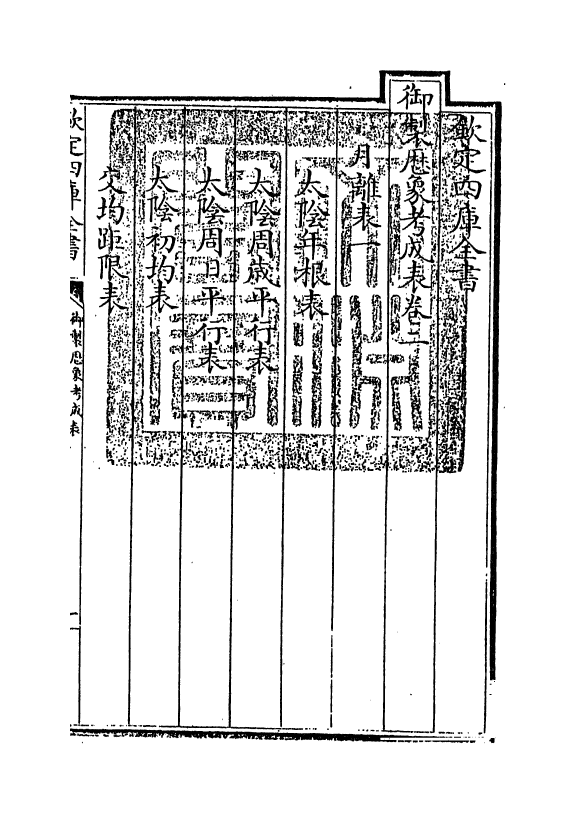 欽定四庫全書
御製厯象考成表卷二
月離表一
太陰年根表
太陰周歲平行表
太陰周日平行表
太陰初均表
交均距限表
欽定四庫全書
御製厯象考成表
一